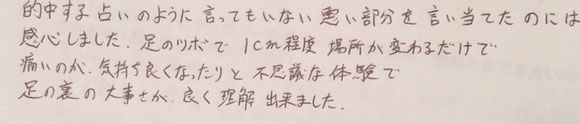 的中する占いのように言ってもいない悪い部分を言い当てたのには
感心しました。足のツボで1cm程度場所が変わるだけで
痛いのが、気持ち良くなったりと不思議な体験で
足の裏の大事さが、良く理解出来ました。